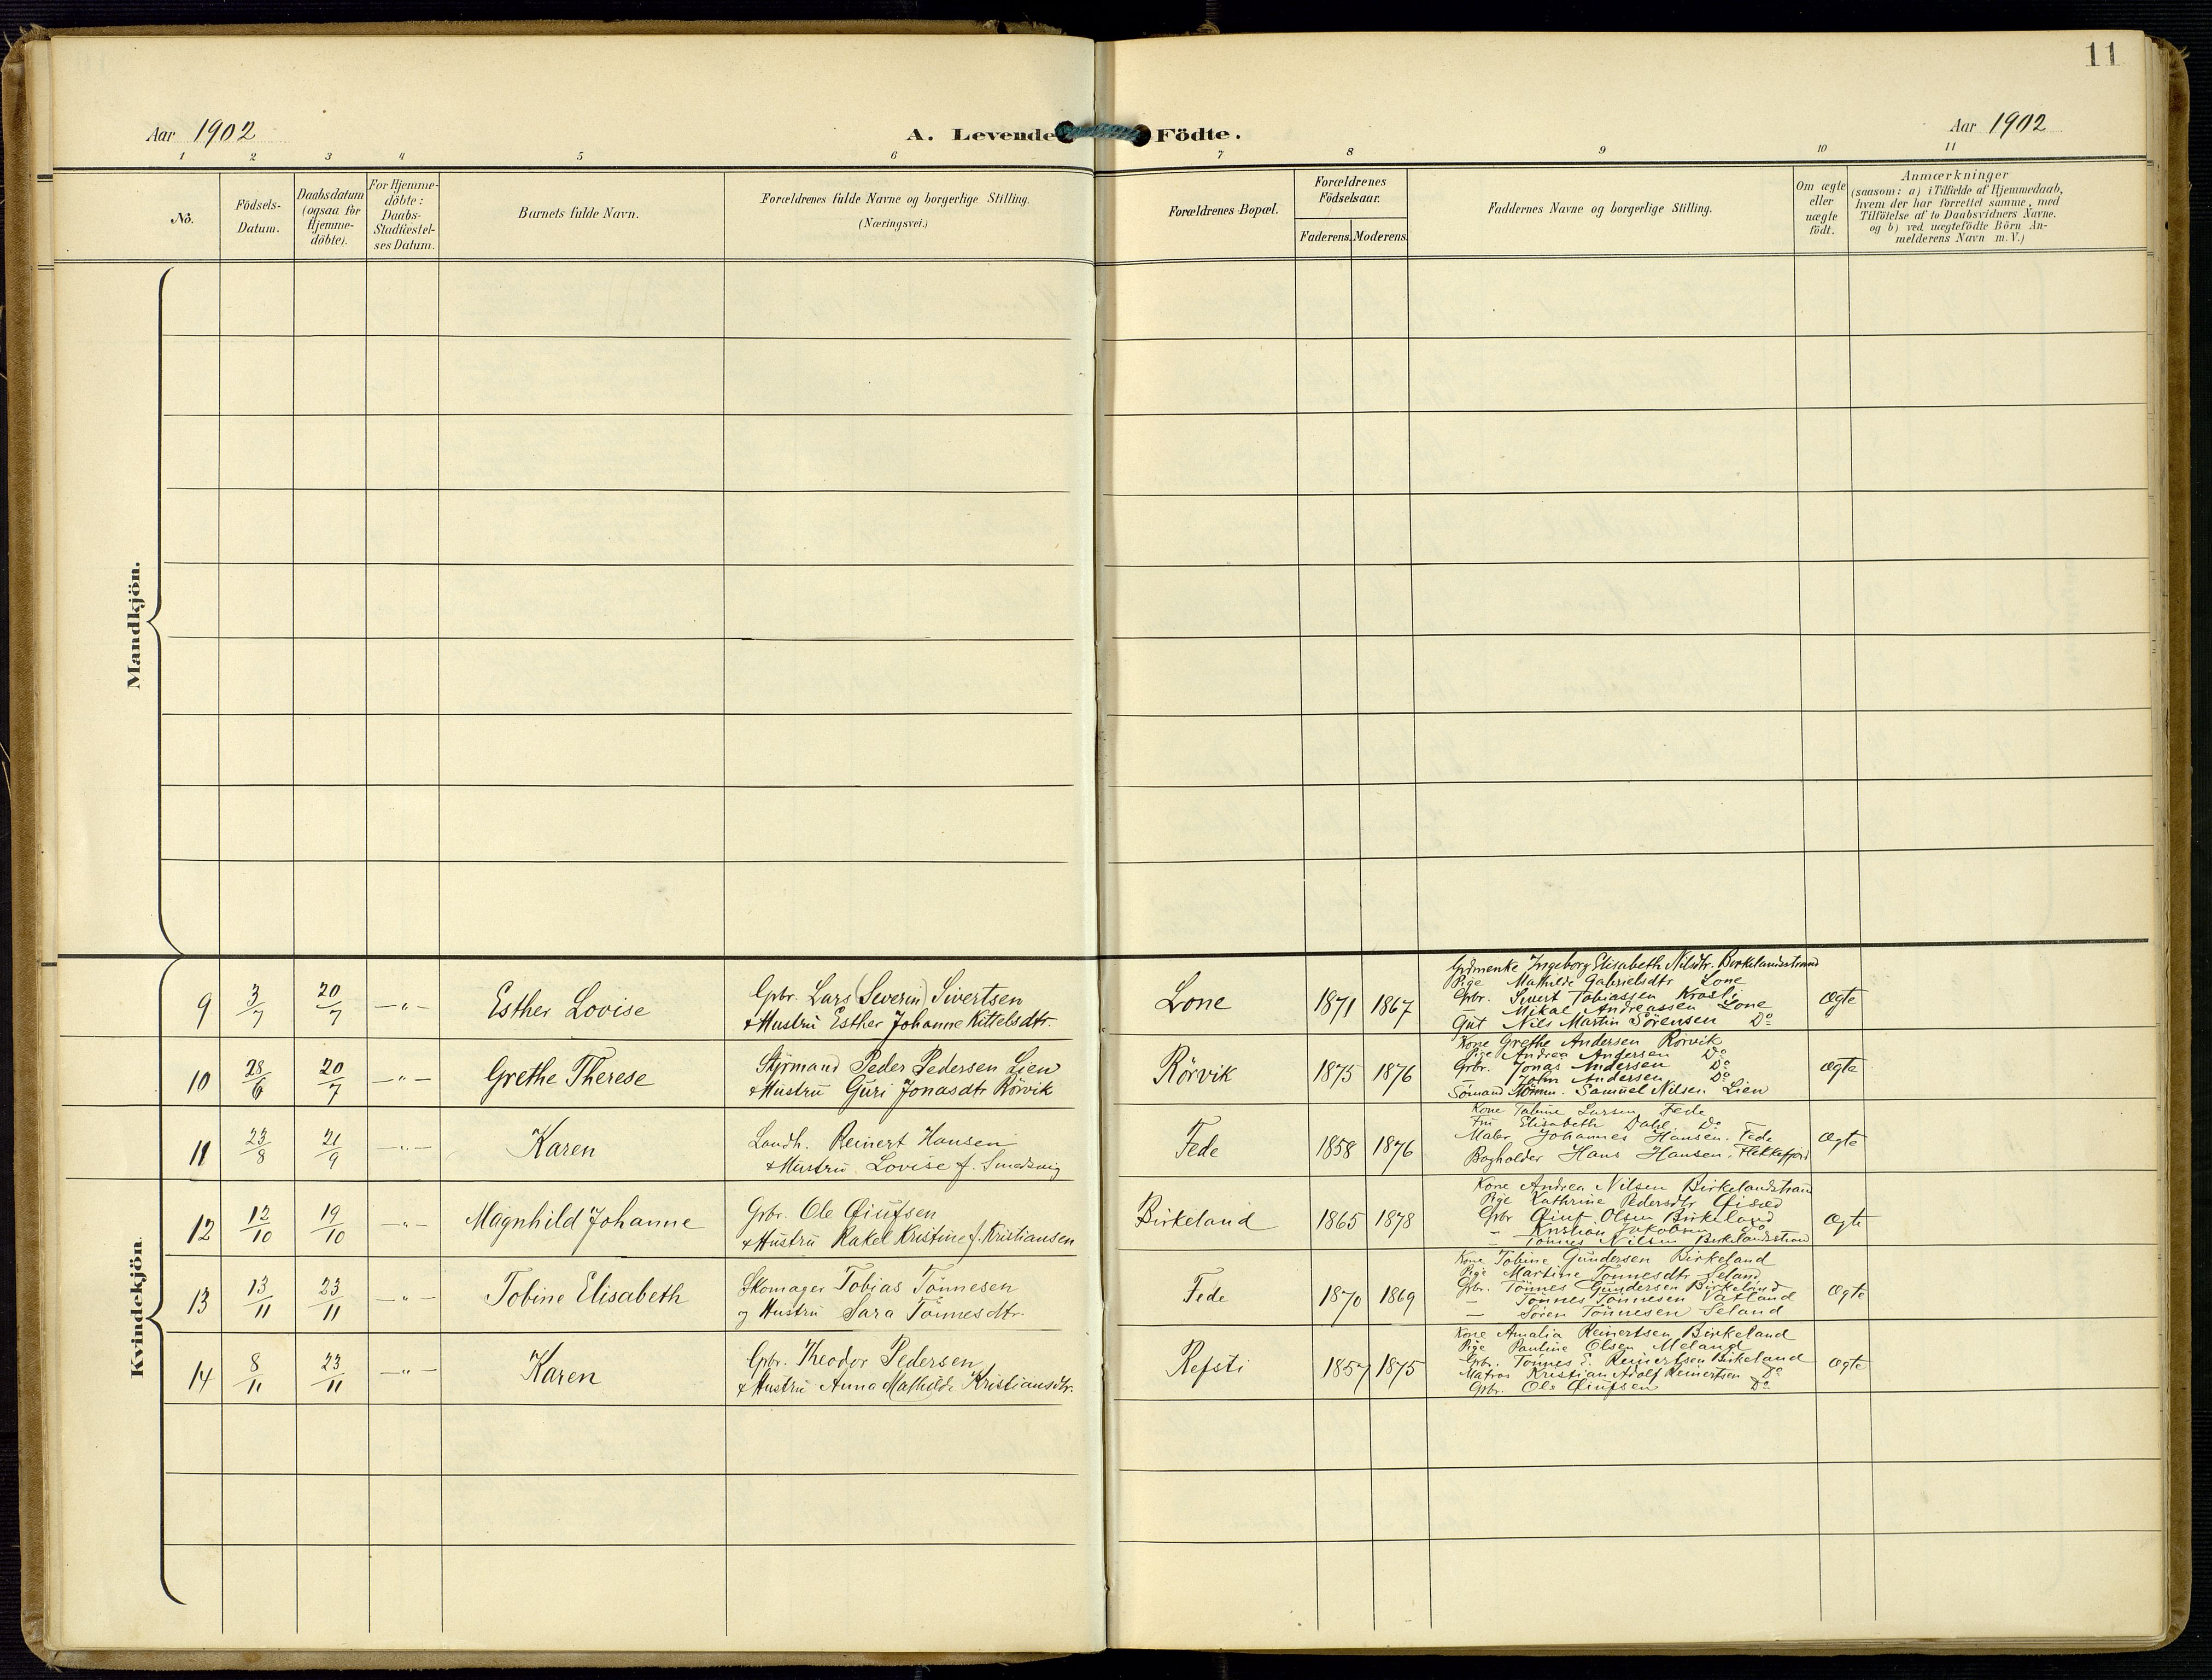 11
Aar 1902
A. Levende Födte.
Aar 1902
1 2 3 4 5 6 7 8 9 10 11
No.
Födsels-
Datum.
Daabsdatum
(ogsaa for
Hjemme-
döbte).
For Hjemme-
döbte:
Daabs-
Stadfæstel-
ses Datum.
Barnets fulde Navn.
Forældrenes fulde Navne og borgerlige Stilling.
(Næringsvei.)
Forældrenes Bopæl.
Forældrenes
Födselsaar.
Faderens. Moderens.
Faddernes Navne og borgerlige Stilling.
Om ægte
eller
uægte
födt.
Anmærkninger
(saasom: a) i Tilfælde af Hjemmedaab,
hvem der har forrettet samme, med
Tilföielse af to Daabsvidners Navne.
og b) ved uægtefödte Börn An-
melderens Navn m. V.)
Mandkjön.
Kvindekjön.
9 3/7 20/7 —"— Esther Lovise
Gbr. Lars (Severin) Sivertsen
& Hustru Esther Johanne Kittelsdtr.
Lone 1871 1867
Grdmenke Ingeborg Elisabeth Nilsdtr. Birkelandsstrand
Pige Mathilde Gabrielsdtr Lone
Gbr. Sivert Tobiassen
— Mikal Andreassen Lone
Gut Nils Martin Sörensen Do
Ægte
10 28/6 20/7 —"— Grethe Therese
Styrmand Peder Pedersen Lien
& Hustru Guri Jonasdtr Rörvik
Rörvik 1875 1876
Kone Grethe Andersen Rörvik
Pige Andrea Andersen Do
Grbr. Jonas Andersen Do
— John Andersen Do
Sömand Samuel Nilsen Lien
Ægte
11 23/8 21/9 —"— Karen
Landh. Reinert Hansen
& Hustru Lovise f. Smedsvig
Fede 1858 1876
Kone Tabine Larsen Fede
Fru Elisabeth Dahl Do
Maler Johannes Hansen. Fede
Bogholder Hans Hansen. Flekkefjord
Ægte
12 12/10 19/10 —"— Magnhild Johanne
Grbr. Ole Øiufsen
& Hustru Rakel Kristine f. Kristiansen
Birkeland 1865 1878
Kone Andrea Nilsen Birkelandstrand
Pige Kathrine Pedersdtr
Grbr Øiuf Olsen Birkeland
- Kristian Jakobsen Do
- Tönnes Nilsen Birkelandsstrand
Ægte
13 13/11 23/11 —"— Tobine Elisabeth
Skomager Tobias Tönnesen
og Hustru Sara Tönnesdtr.
Fede 1870 1869
Kone Tobine Gundersen Birkeland
Pige Martine Tönnesdtr Seland
Grbr. Tönnes Gundersen Birkeland
— Tönnes Tönnesen Vatland
— Sören Tönnesen Seland
Ægte
14 8/11 23/11 —"— Karen
Gbr. Theodor Pedersen
& Hustru Anna Mathilde Kristiansdtr.
Refsti 1857 1875
Kone Amalia Reinertsen Birkeland
Pige Pauline Olsen Meland
Grbr. Tönnes E. Reinertsen Birkeland
Matros Kristian Adolf Reinertsen Do
Grbr. Ole Øiufsen Do
Ægte